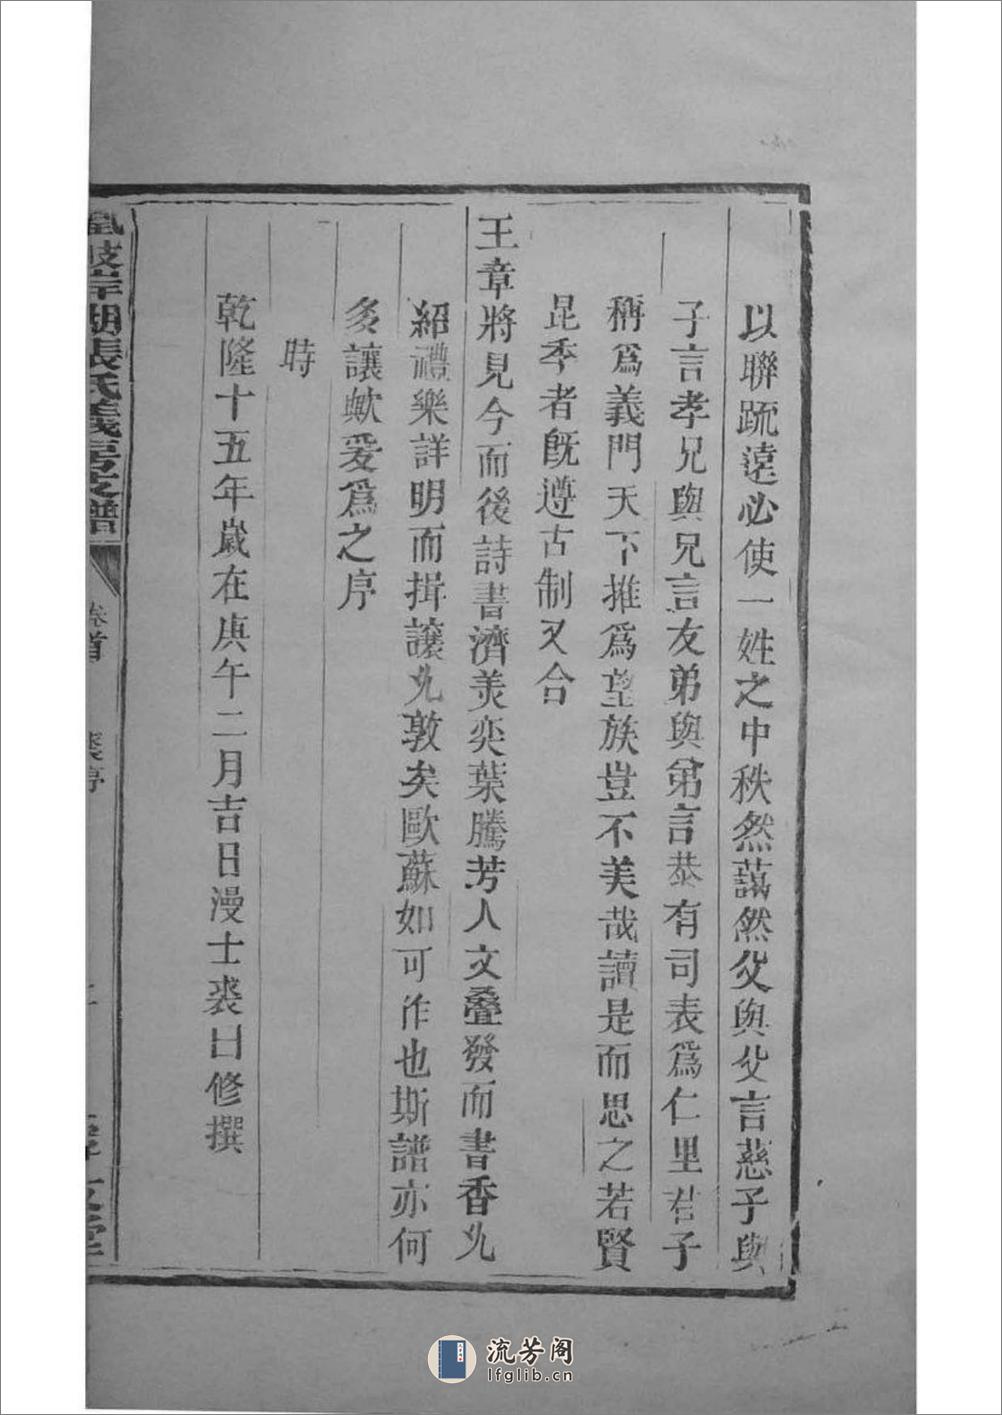 以聯䟽遠必使一姓之中秩然藹然父與父言慈子與
子言孝兄與兄言友弟與弟言恭有司表爲仁里君子
稱爲義門天下推爲望族豈不美哉讀是而思之若賢
昆季者旣遵古制又合
王章將見今而後詩書濟美奕葉騰芳人文叠發而書香允
紹禮樂詳明而揖讓允敦矣歐蘇如可作也斯譜亦何
多讓歟爰爲之序
時
乾隆十五年歲在庚午二月吉日漫士裘曰修撰
岸湖張氏義房支譜
卷首
裘序
流芳阁
lfglib.cn